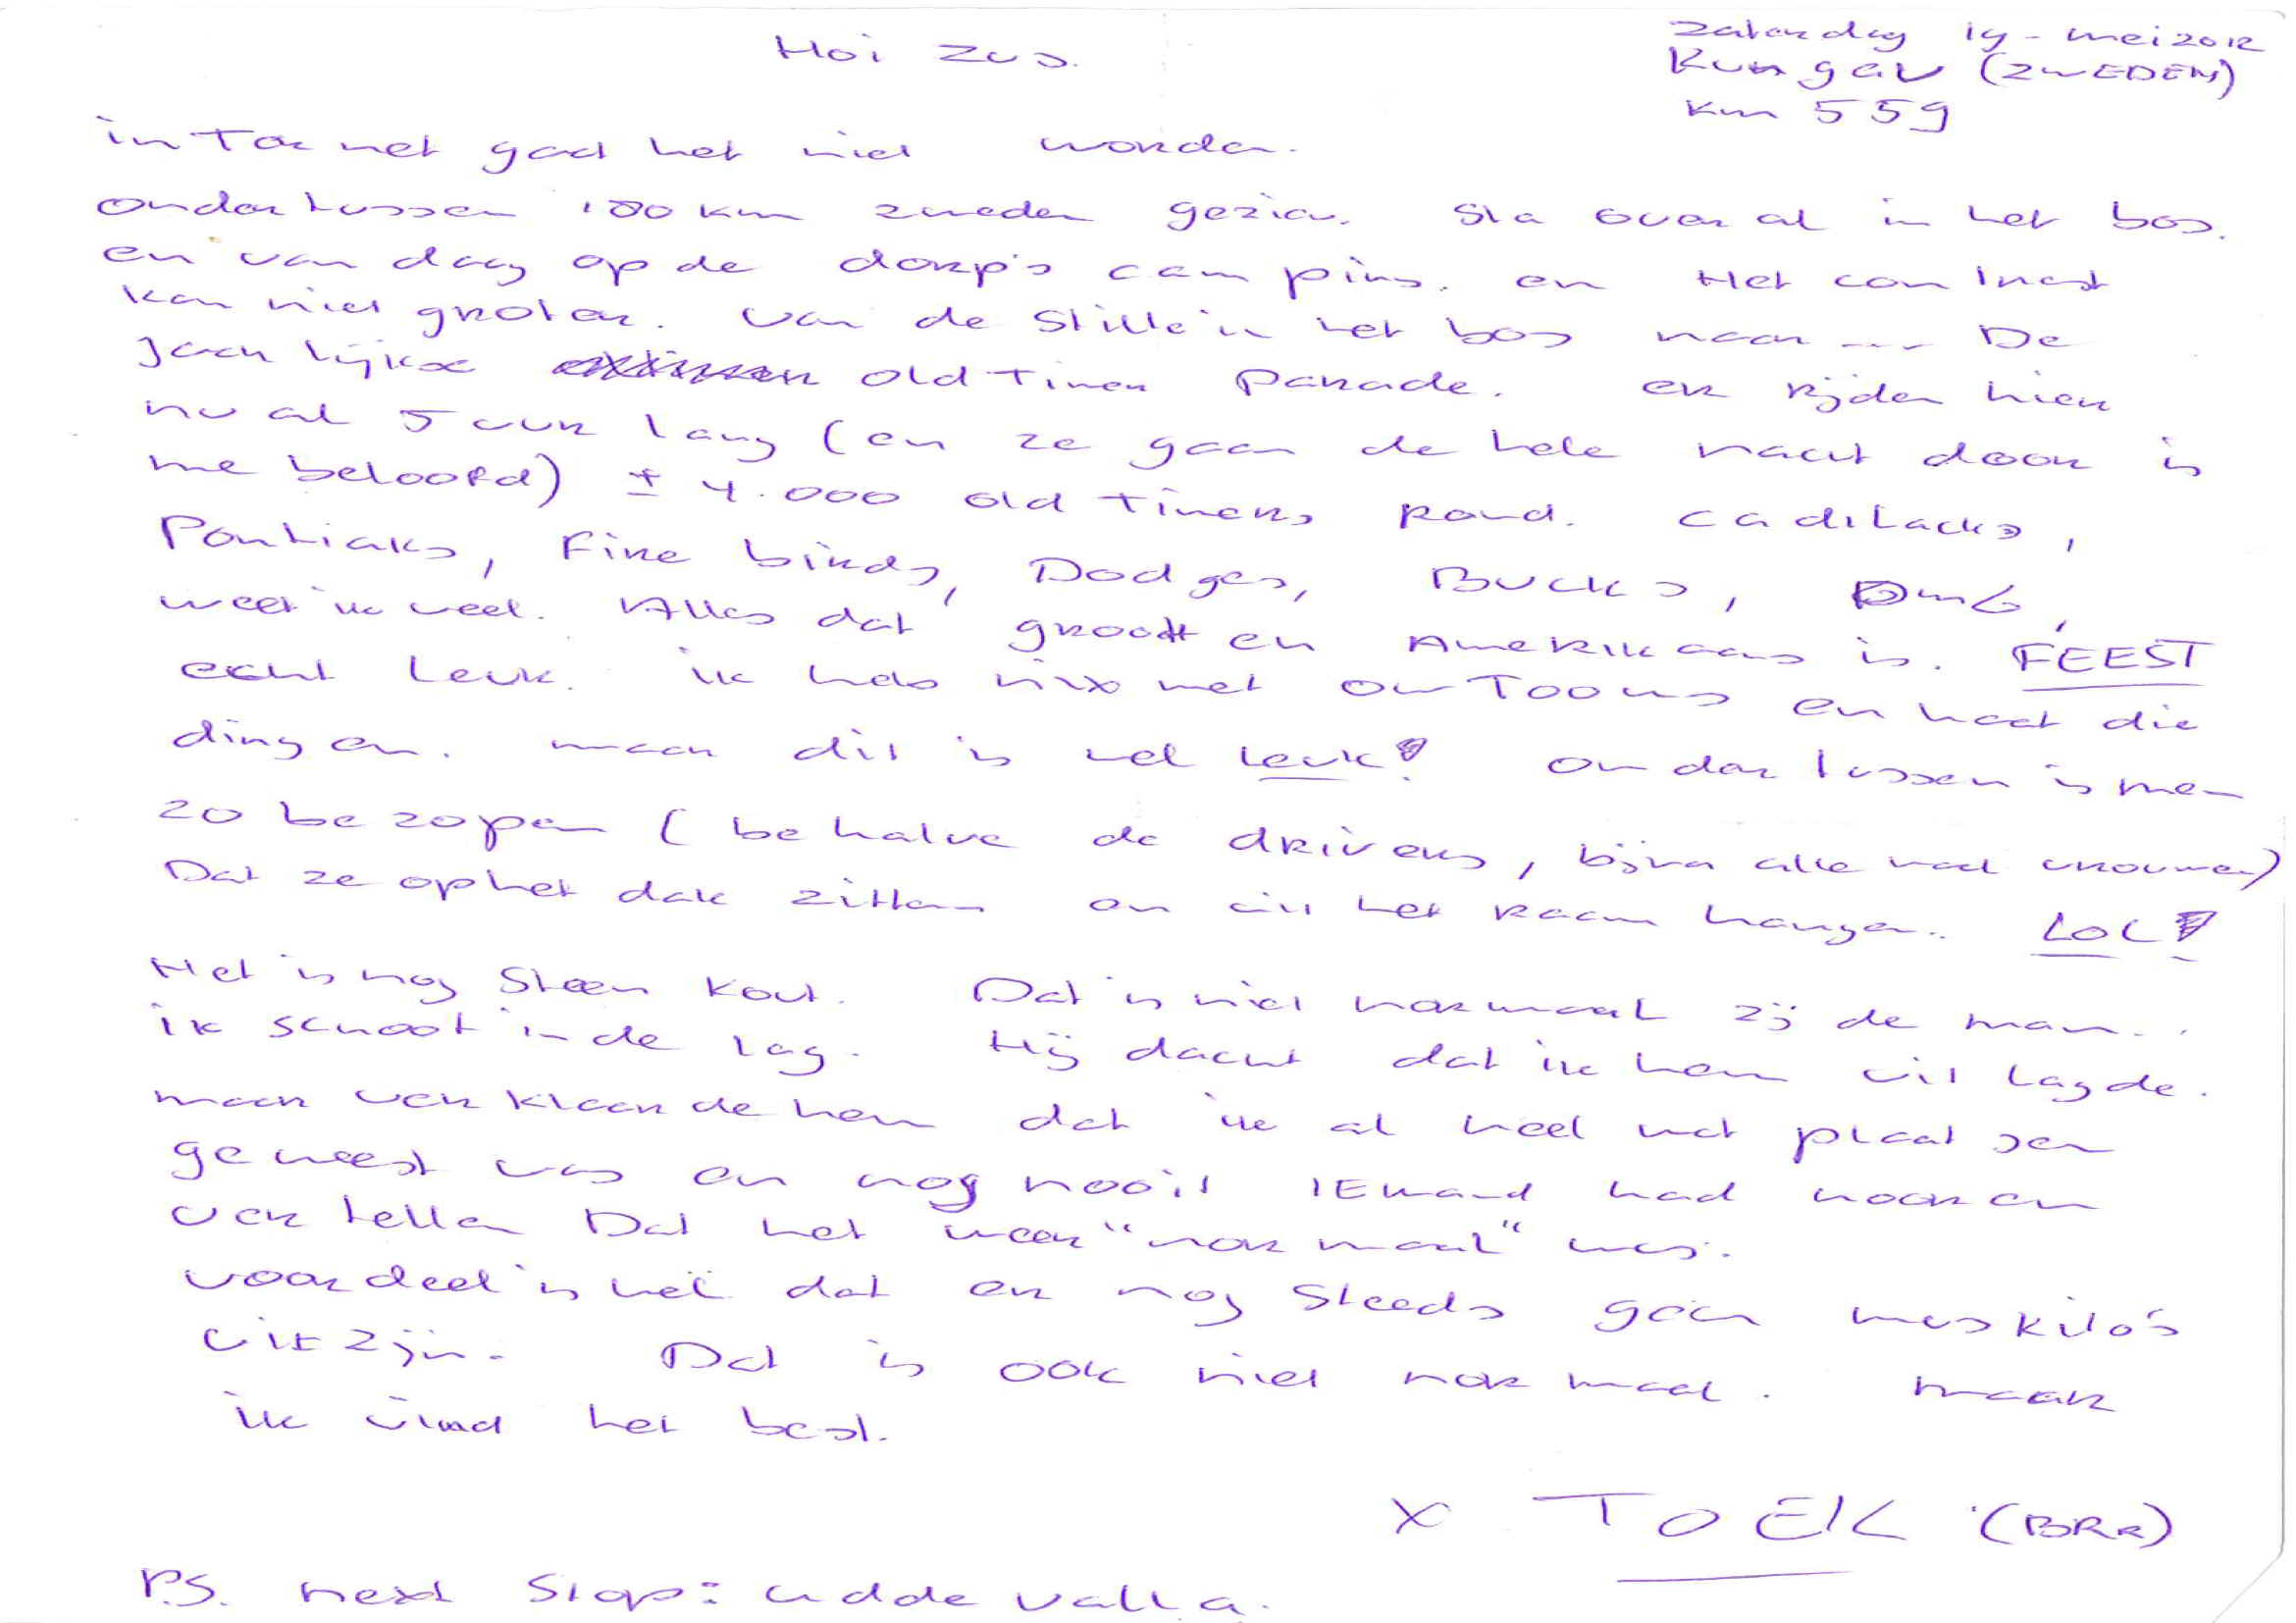 Hoi zus.
zaterdag 19 - mei 2012
Kungälv (ZWEDEN)
km 559
internet gaat het niet worden.
ondertussen 180 km zweden gezien. Sta overal in het bos.
en vandaag op de dorp's camping. en Het contrast
kan niet groter. van de stille in het bos naar --- De
Jaarlijkse old Timer Parade. er rijden hier
nu al 5 uur lang (en ze gaan de hele nacht door is
me beloofd) ± 4.000 old Timers rond. cadilacks,
Pontiaks, Fire birds, Dodges, Bucks, OMG,
weet ik veel. Alles dat groot en Amerikaans is. FEEST
echt leuk. ik heb nix met outoos en haat die
dingen. maar dit is wel leuk! ondertussen is men
zo bezopen (behalve de drivers, bijna alle maal vrouwen)
Dat ze op het dak zitten en uit het raam hangen. LOL!
Het is nog steen kout. Dat is niet normaal zij de man.
ik schoot in de lag. Hij dacht dat ik hem uit lagde.
maar verklaarde hem dat ik al heel wat plaatsen
geweest was en nog nooit iemand had horen
vertellen Dat het weer "normaal" was.
voordeel is het dat er nog steeds geen muskito's
uit zijn. Dat is ook niet normaal. maar
ik vind het best.
x TOEK (BRR)
P.S. next stop: uddevalla.